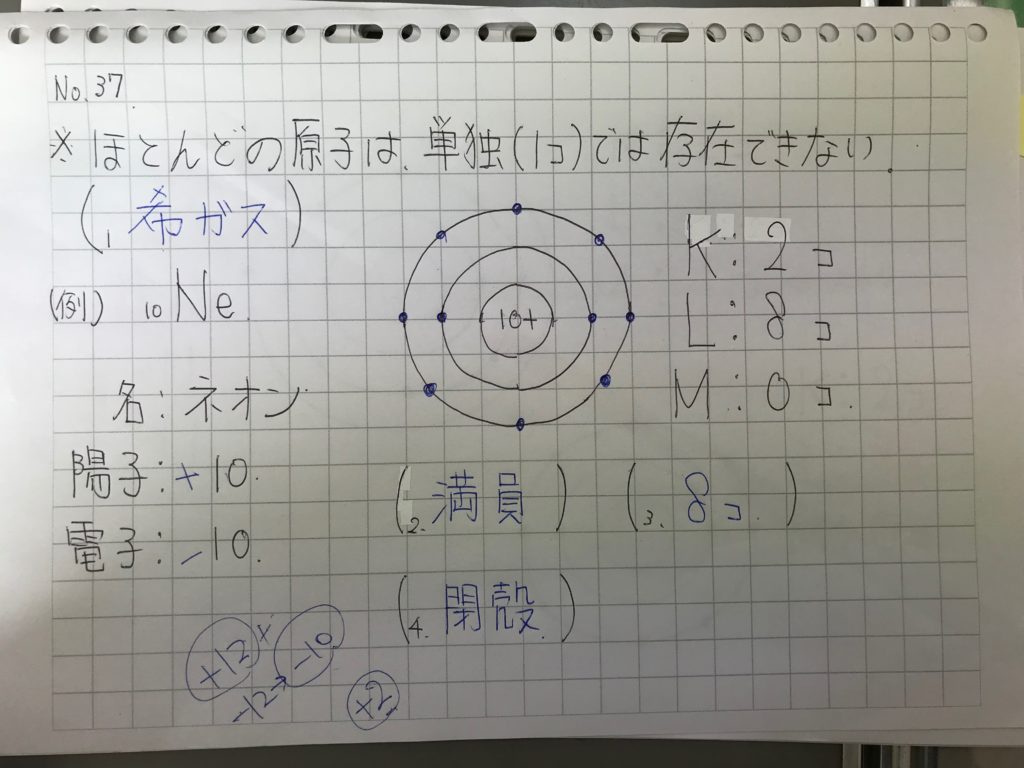 No.37
※ほとんどの原子は、単独(1コ)では存在できない.
(1 希ガス)
(例) 10Ne
10+
K:2コ
L:8コ
M:0コ.
名:ネオン
陽子:+10.
電子:-10.
(2. 満員) (3. 8コ.)
(4. 閉殻.)
+12 -10
-12→
+2